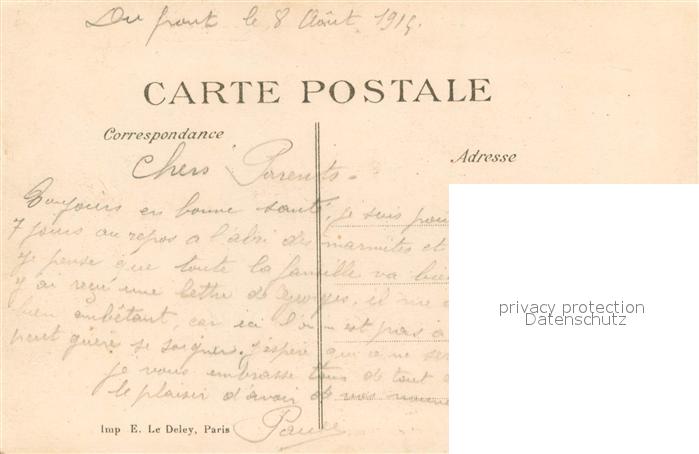 Du front le 8 Août 1915.
CARTE POSTALE
Correspondance
Adresse
Chers Parents.
Toujours en bonne santé, je suis pour
7 jours au repos a l'abri des marmites et
Je pense que toute la famille va bien
J'ai reçu une lettre de Georges, il me
bien embêtant, car ici l'on est pas
peut guère se soigner. J'espère que ce ne ser
je vous embrasse tous de tout
le plaisir d'avoir de vos nouve
Imp E. Le Deley, Paris
privacy protection
Datenschutz